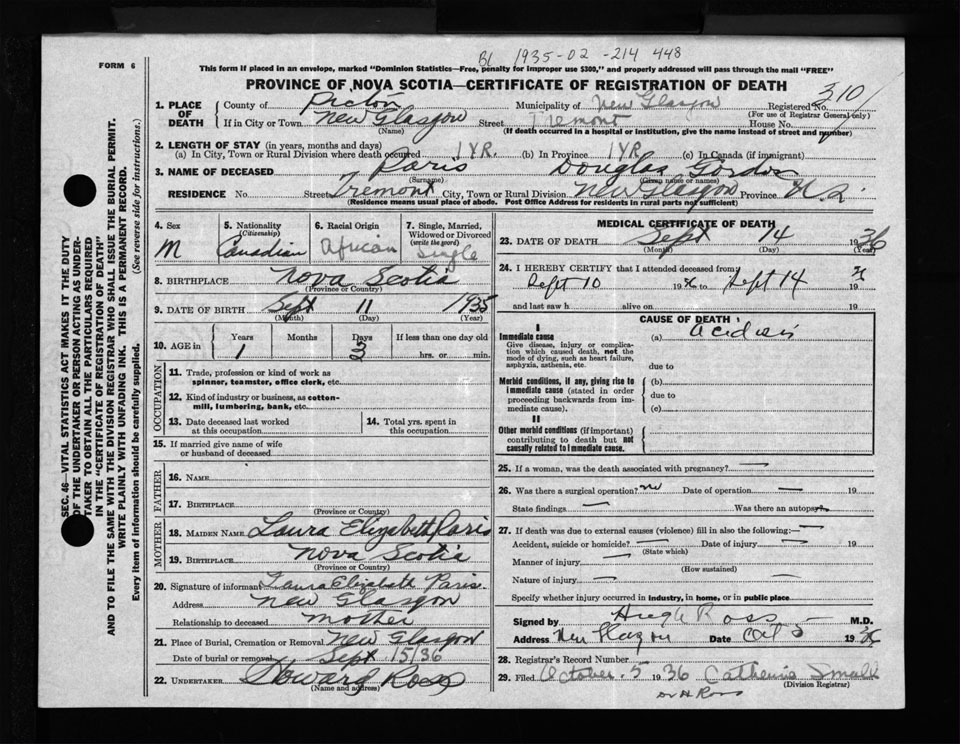 B/ 1935-02-214448
FORM 6
This form if placed in an envelope, marked "Dominion Statistics—Free, penalty for improper use $300," and properly addressed will pass through the mail "FREE"
PROVINCE OF NOVA SCOTIA—CERTIFICATE OF REGISTRATION OF DEATH
SEC. 46—VITAL STATISTICS ACT MAKES IT THE DUTY
OF THE UNDERTAKER OR PERSON ACTING AS UNDER-
TAKER TO OBTAIN ALL THE PARTICULARS REQUIRED
IN THE "CERTIFICATE OF REGISTRATION OF DEATH"
AND TO FILE THE SAME WITH THE DIVISION REGISTRAR WHO SHALL ISSUE THE BURIAL PERMIT.
WRITE PLAINLY WITH UNFADING INK. THIS IS A PERMANENT RECORD.
Every item of information should be carefully supplied. (See reverse side for instructions.)
1. PLACE OF DEATH County of Pictou Municipality of New Glasgow Registered No. 310
(For use of Registrar General only)
If in City or Town New Glasgow Street Tremont House No.
(Name) (If death occurred in a hospital or institution, give the name instead of street and number)
2. LENGTH OF STAY (in years, months and days)
(a) In City, Town or Rural Division where death occurred 1 YR. (b) In Province 1 YR (c) In Canada (if immigrant)
3. NAME OF DECEASED Paris Douglas Gordon
(Surname) (Given name or names)
RESIDENCE No. Street Tremont City, Town or Rural Division New Glasgow Province N.S.
(Residence means usual place of abode. Post Office Address for residents in rural parts not sufficient)
4. Sex 5. Nationality (Citizenship) 6. Racial Origin 7. Single, Married, Widowed or Divorced (write the word)
M Canadian African Single
8. BIRTHPLACE Nova Scotia
(Province or Country)
9. DATE OF BIRTH Sept 11 1935
(Month) (Day) (Year)
10. AGE in Years Months Days If less than one day old
1 3 hrs. or min.
OCCUPATION
11. Trade, profession or kind of work as
spinner, teamster, office clerk, etc.
12. Kind of industry or business, as cotton-
mill, lumbering, bank, etc.
13. Date deceased last worked at this occupation 14. Total yrs. spent in this occupation
15. If married give name of wife
or husband of deceased
FATHER
16. NAME
17. BIRTHPLACE
(Province or Country)
MOTHER
18. MAIDEN NAME Laura Elizabeth Paris
19. BIRTHPLACE Nova Scotia
(Province or Country)
20. Signature of informant Laura Elizabeth Paris.
Address New Glasgow
Relationship to deceased mother
21. Place of Burial, Cremation or Removal New Glasgow
Date of burial or removal Sept 15/36
22. UNDERTAKER Howard Ross
(Name and address)
MEDICAL CERTIFICATE OF DEATH
23. DATE OF DEATH Sept 14 1936
(Month) (Day) (Year)
24. I HEREBY CERTIFY that I attended deceased from
Sept 10 1936 to Sept 14 19
and last saw h alive on 19
CAUSE OF DEATH
I
Immediate cause (a) Acidosis
Give disease, injury or complica-
tion which caused death, not the
mode of dying, such as heart failure,
asphyxia, asthenia, etc. due to
Morbid conditions, if any, giving rise to (b)
immediate cause (stated in order due to
proceeding backwards from im-
mediate cause). (c)
II
Other morbid conditions (if important)
contributing to death but not
causally related to immediate cause.
25. If a woman, was the death associated with pregnancy? —
26. Was there a surgical operation? no Date of operation — 19
State findings — Was there an autopsy
27. If death was due to external causes (violence) fill in also the following: —
Accident, suicide or homicide? — Date of injury — 19
(State which)
Manner of injury —
(How sustained)
Nature of injury — —
Specify whether injury occurred in industry, in home, or in public place
Signed by Hugh Ross M.D.
Address New Glasgow Date Oct 5 1936
28. Registrar's Record Number
29. Filed October 5 1936 Catherine Small
(Division Registrar)
Dr H Ross